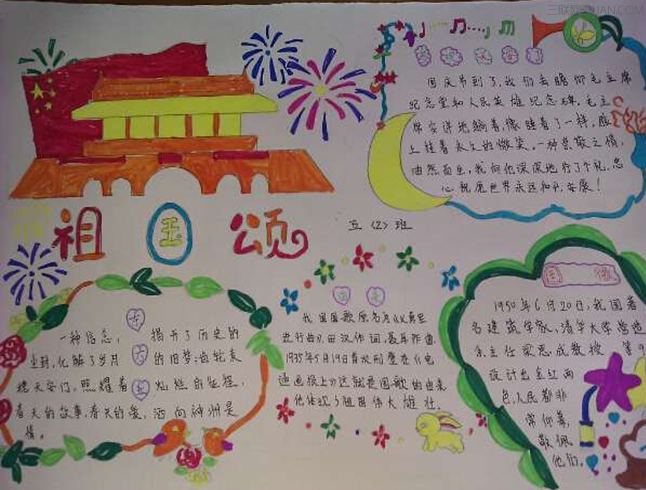 祖国颂
五（2）班
国庆节到了，我们去瞻仰毛主席
纪念堂和人民英雄纪念碑，毛主
席安详地躺着，像睡着了一样，脸
上挂着永久的微笑，一种崇敬之情，
油然而生，我向他深深地行了个礼，忠
心祝愿世界永远和平、安康！
一种信念，揭开了历史的
尘封，化解了岁月的旧梦；齿轮衣
穗天安门，照耀着
春天的故事，春天的爱，洒向神州是
情。
国歌
我国国歌原名为《义勇军
进行曲》，田汉作词，聂耳作曲，
1935年5月19日首次刊登在《电
通画报上》，这就是国歌的由来
他体现了祖国伟大雄壮。
国徽
1950年6月20日，我国著
名建筑学家、清华大学营造
系主任梁思成教授
设计出金红两
色，人民都非
常仰慕，
敬佩
他们。